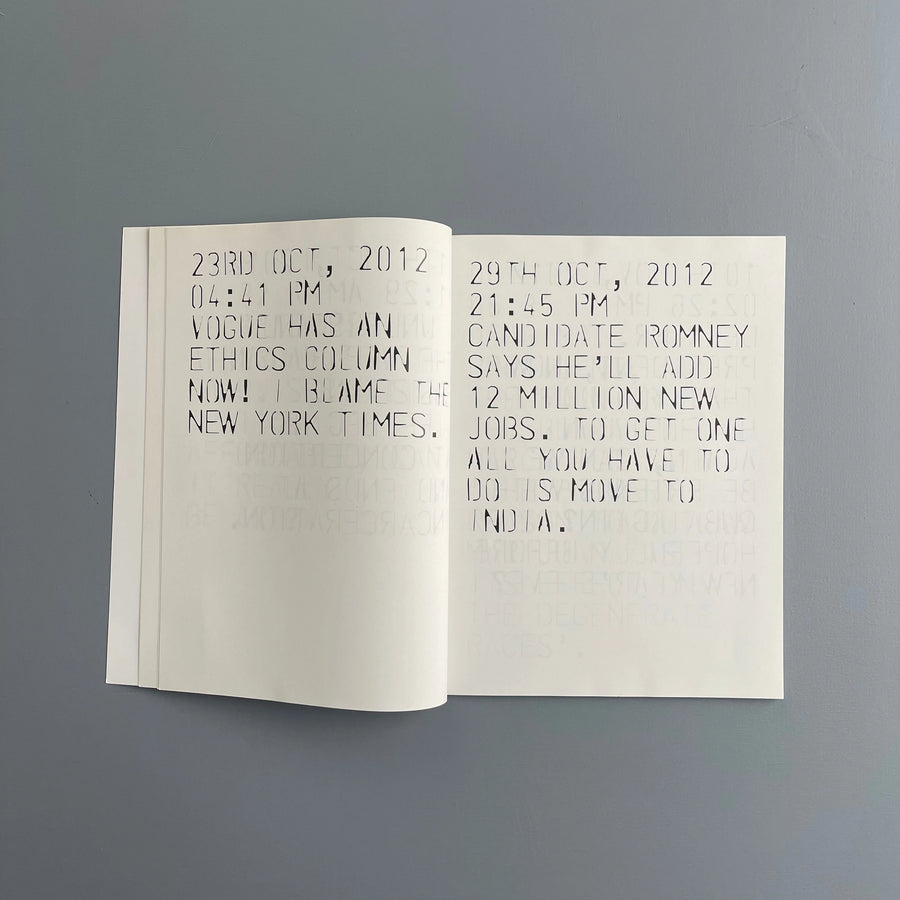 23RD OCT, 2012
04:41 PM
VOGUE HAS AN
ETHICS COLUMN
NOW! I BLAME THE
NEW YORK TIMES.
29TH OCT, 2012
21:45 PM
CANDIDATE ROMNEY
SAYS HE'LL ADD
12 MILLION NEW
JOBS. TO GET ONE
ALL YOU HAVE TO
DO IS MOVE TO
INDIA.